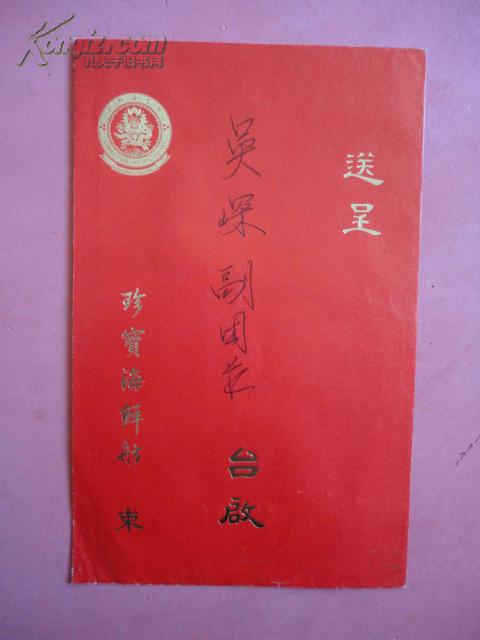 Kongfz.com
孔夫子旧书网
送呈
吴琛副团长 台啟
珍寶海鮮舫 柬